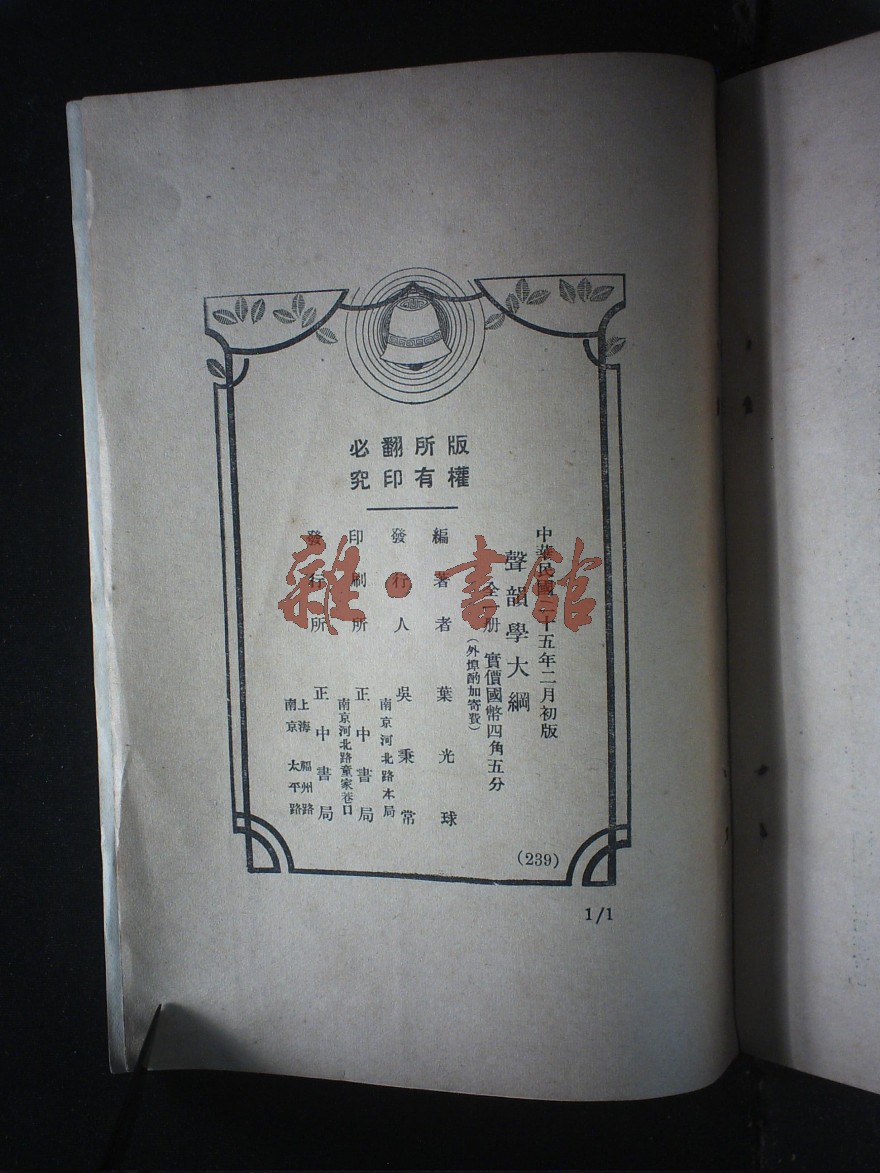 版權所有翻印必究
中華民國二十五年二月初版
聲韻學大綱
全一册 實價國幣四角五分
(外埠酌加寄費)
編著者 葉光球
發行人 吳秉常
南京河北路本局
印刷所 正中書局
南京河北路童家巷口
發行所 正中書局
上海 福州路
南京 太平路
(239)
1/1
雜·書館